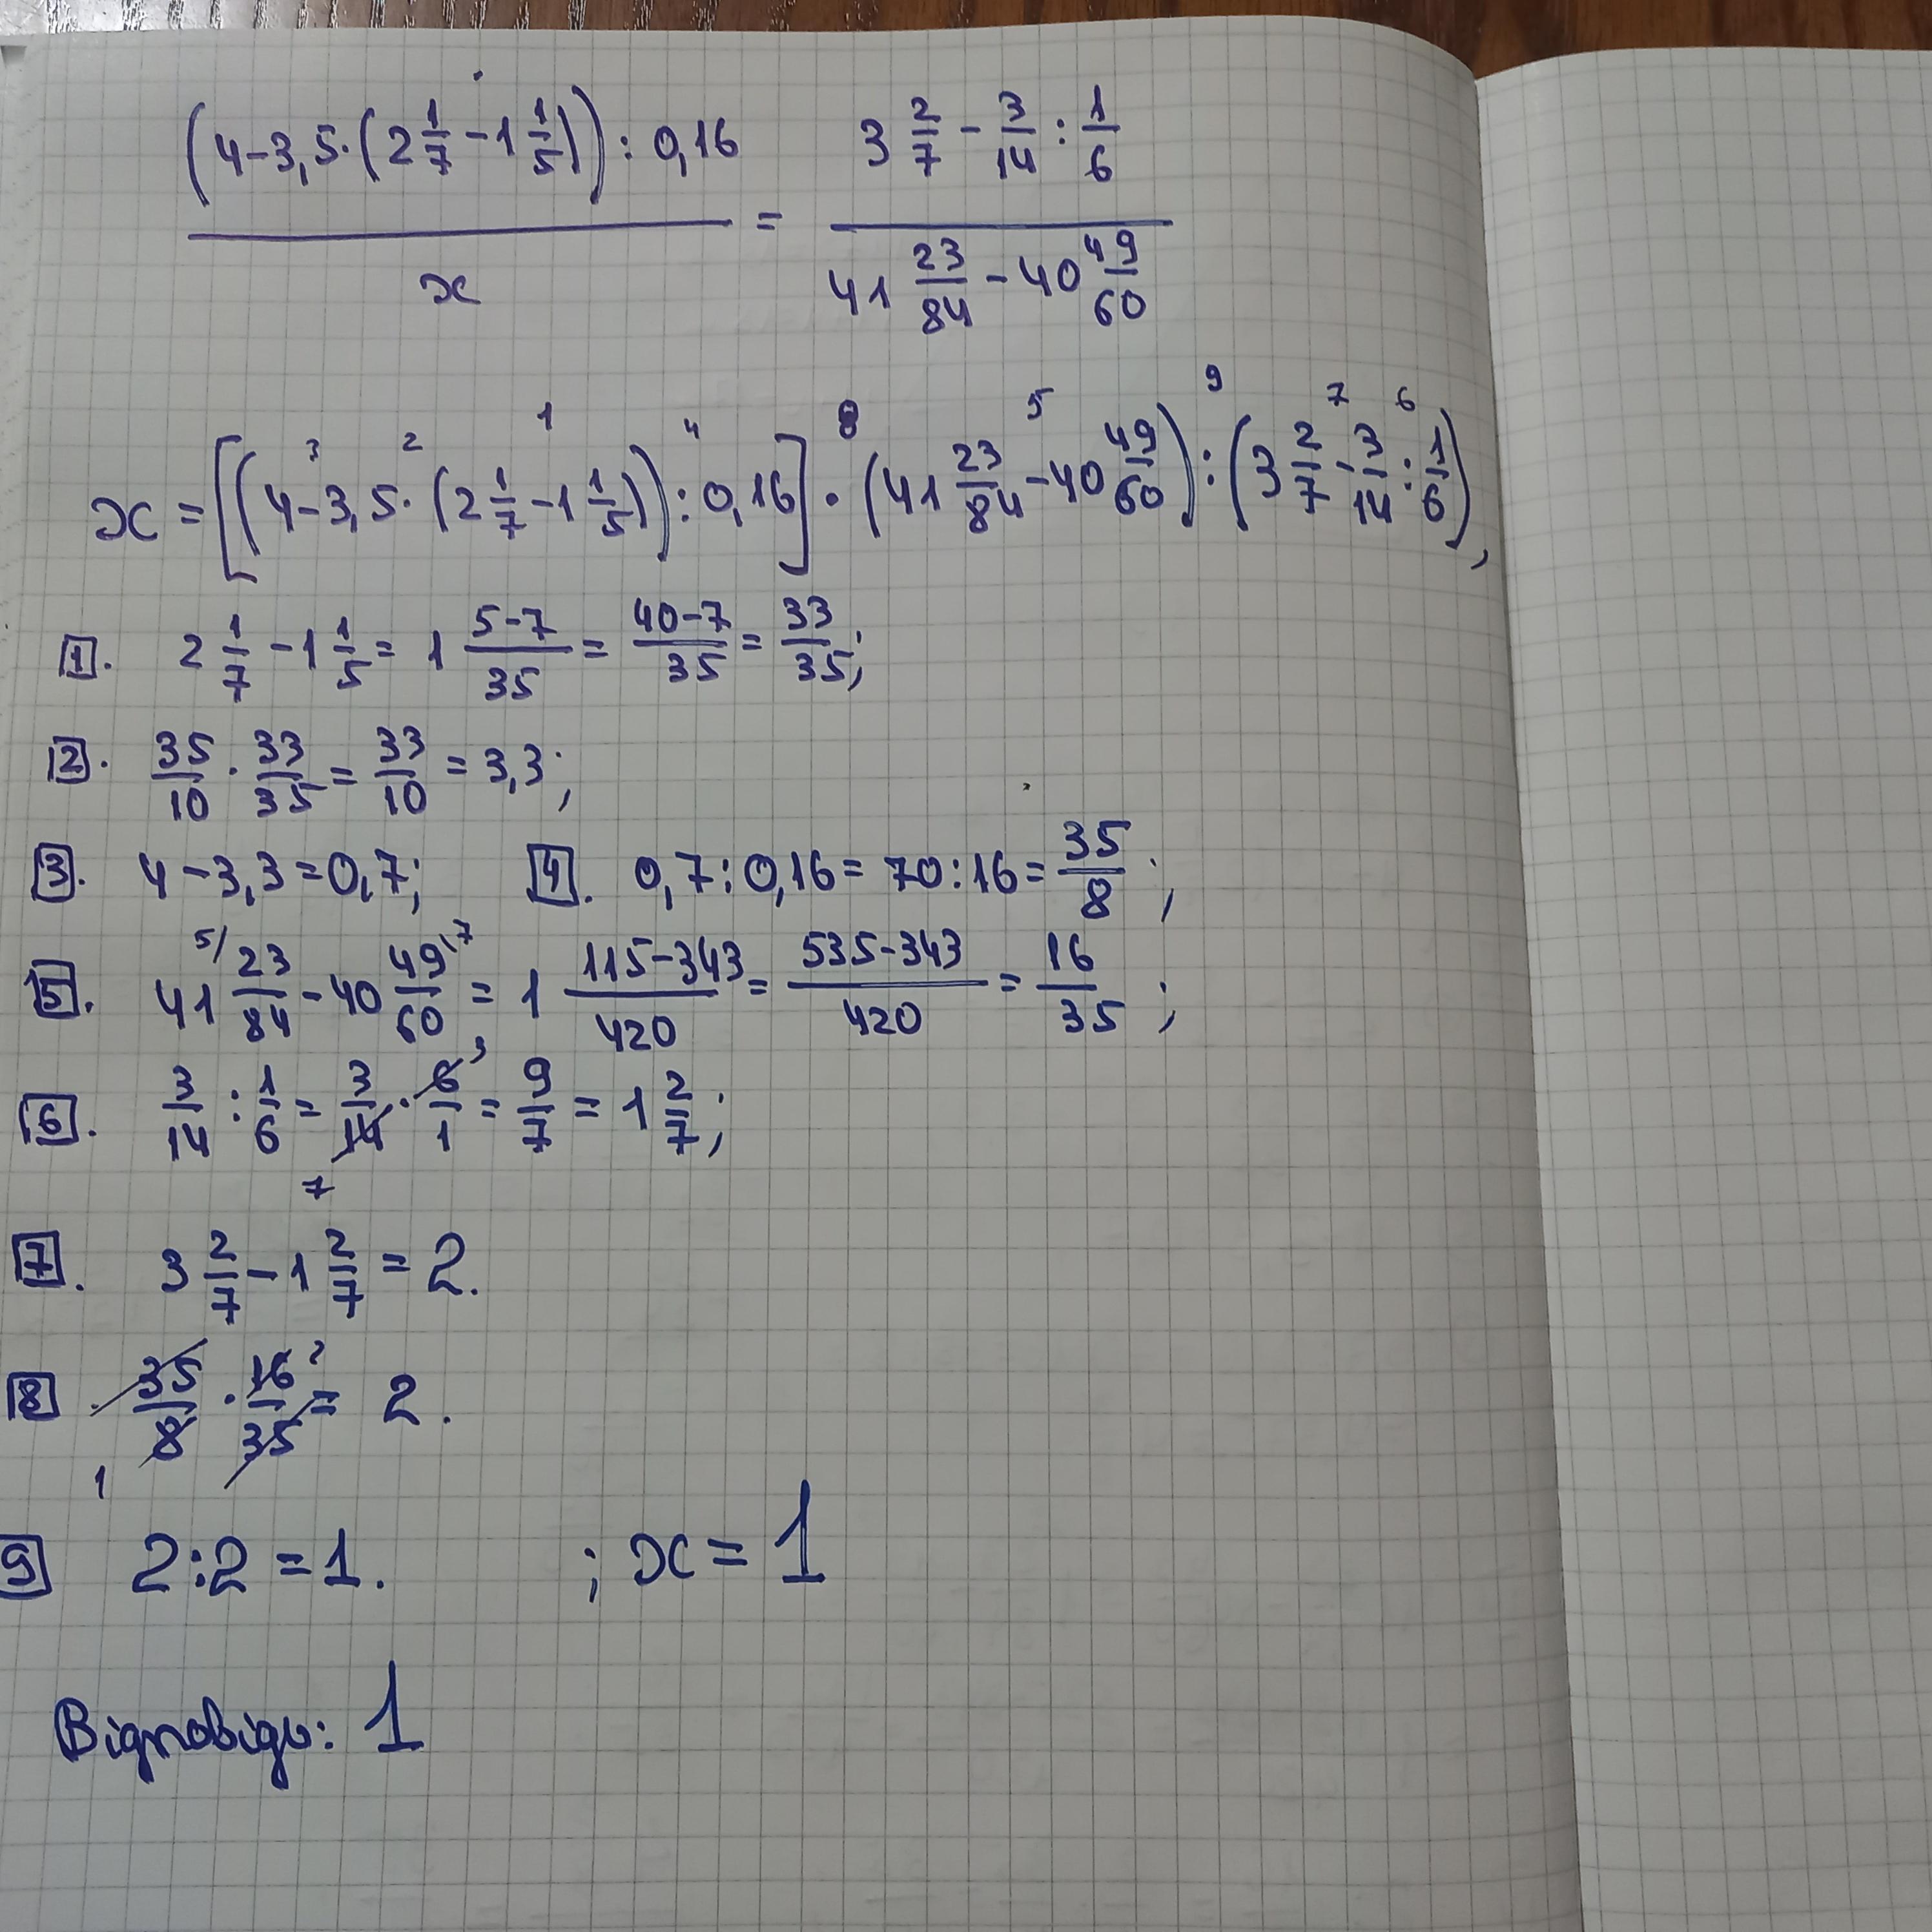 (4-3,5·(2 1/7 - 1 1/5)) : 0,16 / x = 3 2/7 - 3/14 : 1/6 / 41 23/84 - 40 49/60
3 2 1 4 8 5 9 7 6
x = [(4-3,5·(2 1/7 - 1 1/5)) : 0,16] · (41 23/84 - 40 49/60) : (3 2/7 - 3/14 : 1/6),
1. 2 1/7 - 1 1/5 = 1 5-7/35 = 40-7/35 = 33/35;
2. 35/10 · 33/35 = 33/10 = 3,3;
3. 4 - 3,3 = 0,7; 4. 0,7 : 0,16 = 70 : 16 = 35/8;
5. 41 5/ 23/84 - 40 49\7/60 = 1 115-343/420 = 535-343/420 = 16/35;
6. 3/14 : 1/6 = 3/14 7 · 6 3/1 = 9/7 = 1 2/7;
7. 3 2/7 - 1 2/7 = 2.
8. 35/8 1 · 16 2/35 = 2.
9 2 : 2 = 1. ; x = 1
Відповідь: 1